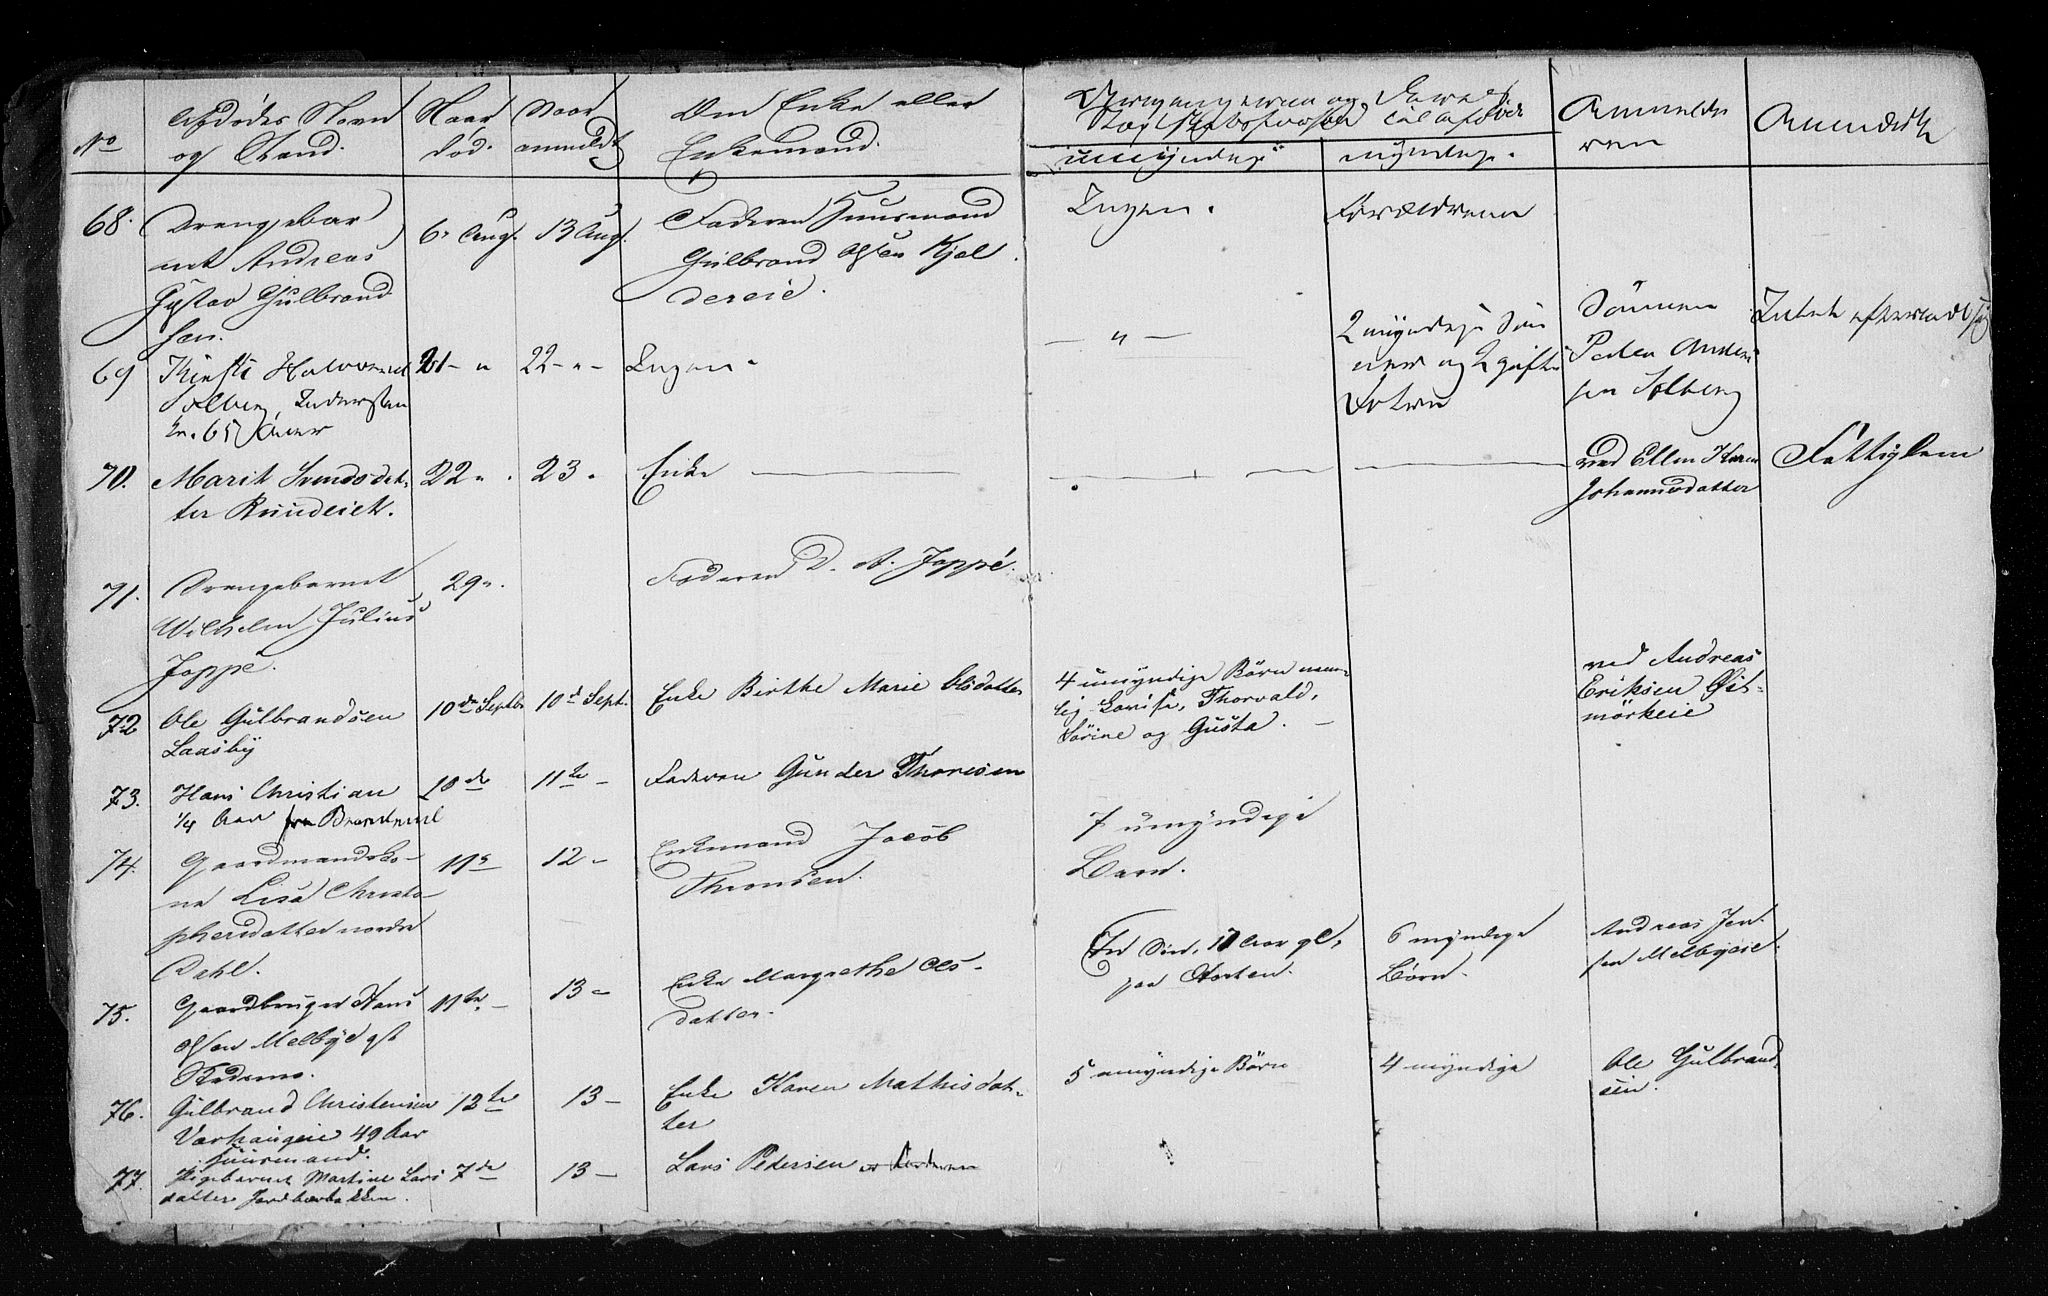 No
Afdødes Navn
og Stand.
Naar
død.
Naar
anmeldt
Om Enke eller
Enkemand.
umyndige
myndige.
Anmelde
ren
Anmærk
68.
Drengebar
net Andreas
Gustav Gulbrand
sen.
6. Aug.
13 Aug.
Faderen Huusmand
Gulbrand Olsen Kjol
dereie.
Ingen.
Forældrene
69
Kirsti Halvorsdt
Solberg, Indersten
ke. 65 Aar
21 - "
22 - " -
Ingen.
— " —
2 myndige Søn
ner og 2 gifte
Døtre
Sönnen
Peder Anders
sen Solberg
Intet efterladt sig
70.
Marit Svendsdat-
ter Rundeiet.
22 " .
23 "
Enke
ved Ellen Karen
Johannesdatter
Fattiglem
71.
Drengebarnet
Wilhelm Julius
Joppé.
29 ".
Faderen D. A. Joppé.
72
Ole Gulbrandsen
Laasby
10de Septbr
10d Sept.
Enke Birthe Marie Olsdatter
4 umyndige Börn nem-
lig Lovise, Thorvald,
Sörine og Gusta. —
ved Andreas
Eriksen Öst-
mörkeie
73.
Hans Christian
1/4 Aar fra
10de
11te -
Faderen Gunder Thoresen
74.
Gaardmandsko-
ne Lisa Christo-
phersdatter nordre
Dahl.
11te
12 -
Enkemand Jacob
Thronsen.
7 umyndige
Barn.
75.
Gaardbruger Hans
Olsen Melbye
11te -
13 -
Enke Margrethe Ols-
datter.
En Sön, 17 Aar gl,
6 myndige
Börn.
Andreas Jen-
sen Melbyeie.
76.
Gulbrand Christensen
Varhaugeie 49 Aar
Huusmand.
12te
13 -
Enke Karen Mathisdat-
ter
5 umyndige Börn
4 myndige
Ole Gulbrand-
sen.
77.
Pigebarnet Martine Lars
datter Jordbærbakken.
7de
13 -
Lars Pedersen er Faderen